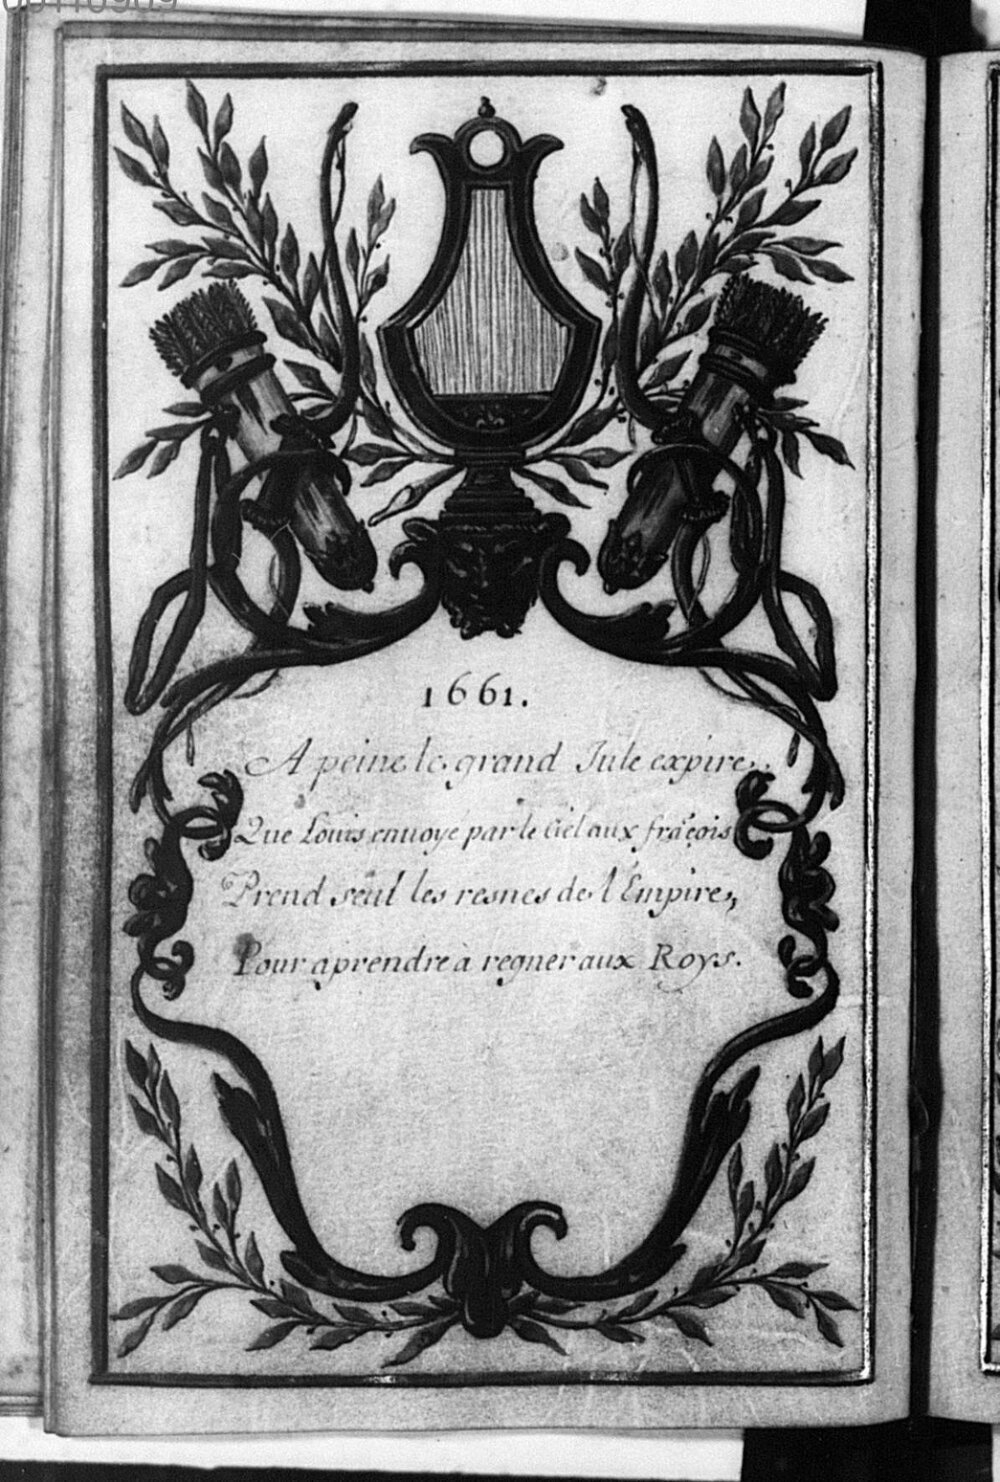 00110909
1661.
A peine le grand Jule expire,
Que Louis envoyé par le Ciel aux frãçois
Prend seul les resnes de l'Empire,
Pour aprendre à regner aux Roys.